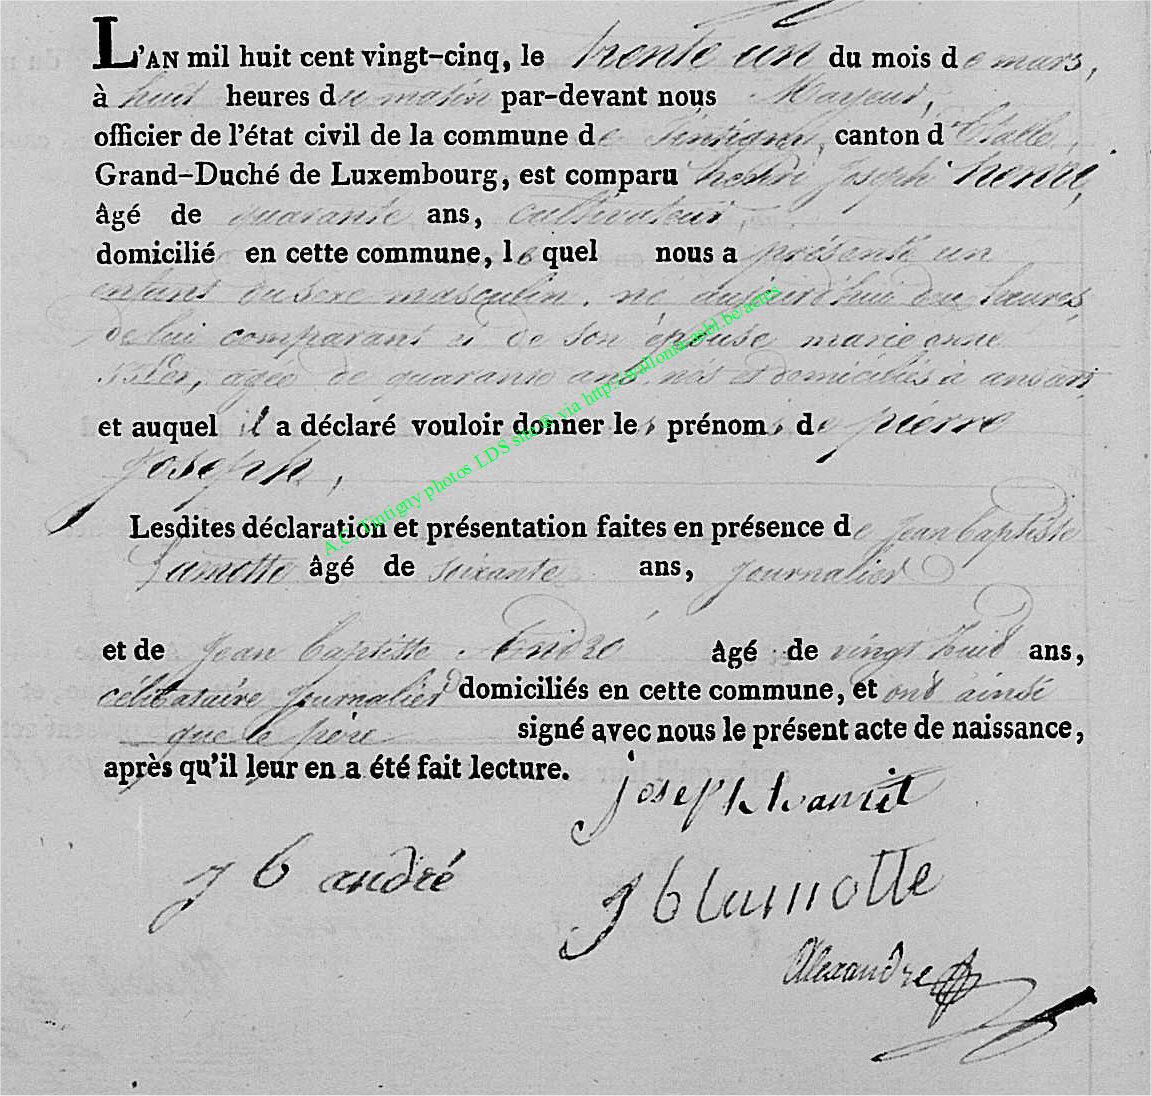 L'AN mil huit cent vingt-cinq, le trente un du mois de mars,
à huit heures du matin par-devant nous Mayeur,
officier de l'état civil de la commune de tintigny, canton d'Etalle,
Grand-Duché de Luxembourg, est comparu henri Joseph henri,
âgé de quarante ans, cultivateur,
domicilié en cette commune, lequel nous a présenté un
enfant du sexe masculin, né aujourd'hui heures,
de lui comparant et de son épouse marie anne
agée de quarante ans, nés et domiciliés à ansart
et auquel il a déclaré vouloir donner les prénoms de pierre
Joseph,
Lesdites déclaration et présentation faites en présence de jean baptiste
Lamotte âgé de soixante ans, journalier
et de jean baptiste André âgé de vingt huit ans,
célibataire journalier domiciliés en cette commune, et ont ainsi
que le père signé avec nous le présent acte de naissance,
après qu'il leur en a été fait lecture.
joseph
j b andré
J b lamotte
Alexandre
A.C. Tintigny photos LDS site © via http://wallonia-asbl.be/actes